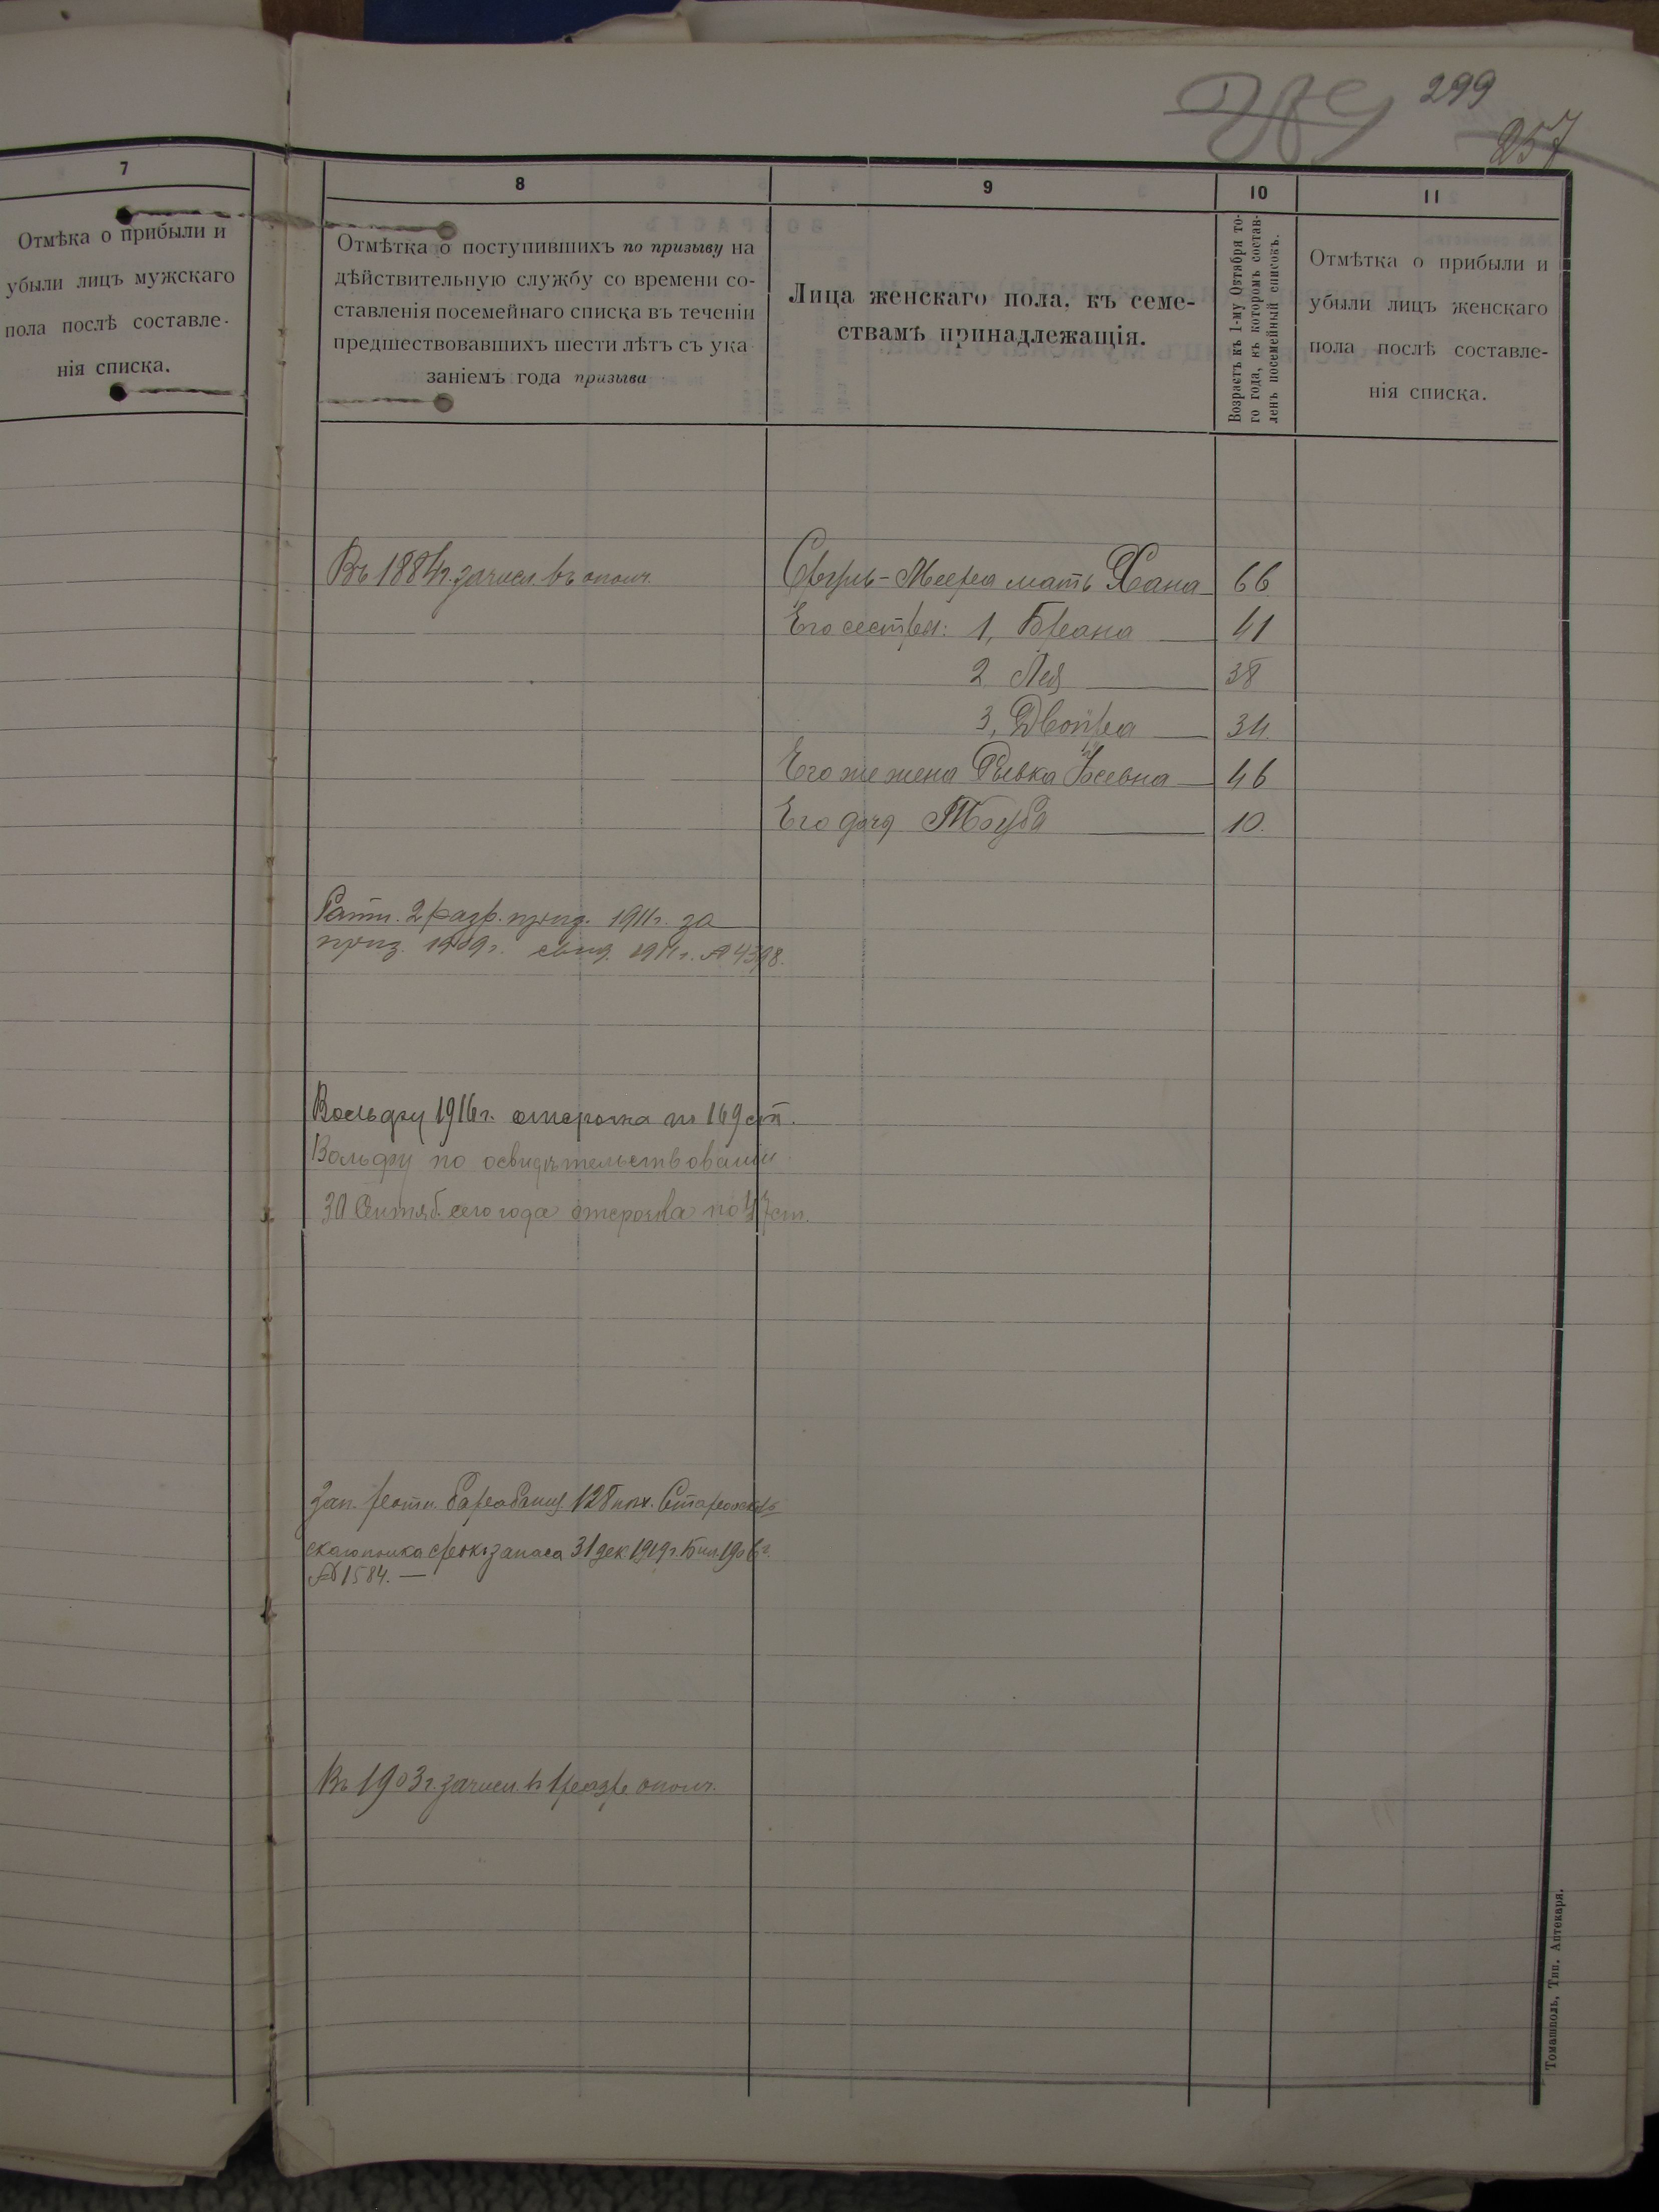 299
257
7
Отмѣка о прибыли и
убыли лицъ мужскаго
пола послѣ составле-
нія списка.
8
Отмѣтка о поступившихъ по призыву на
дѣйствительную службу со времени со-
ставленія посемейнаго списка въ теченіи
предшествовавшихъ шести лѣтъ съ ука
заніемъ года призыва
9
Лица женскаго пола, къ семе-
ствамъ принадлежащія.
10
Возрастъ къ 1-му Октября то-
го года, въ которомъ состав-
ленъ посемейный списокъ.
11
Отмѣтка о прибыли и
убыли лицъ женскаго
пола послѣ составле-
нія списка.
Въ 1884 г. зачисл. въ ополч.
мать Хана 66
Его сестры: 1, Бреана 41
2 Лея 38
3, Двойра 34
Его же жена Рывка 46
Его дочь 10.
Ратн. 2 разр. приз. 1911 г. за
приз. 1909 г. свид. 1911 г. № 4398.
Вольфу 1916 г. отсрочка по 169 ст.
Вольфу по освидѣтельствованіи
30 Сентяб. сего года отсрочка по 47 ст.
Зап. 128 пѣх.
скаго полка срокъ запаса 31 дек 1919 г. Бил. 1906 г.
№ 1584. —
Въ 1903 г. зачисл. в 1 разр. ополч.
Томашполь, Тип. Аптекаря.